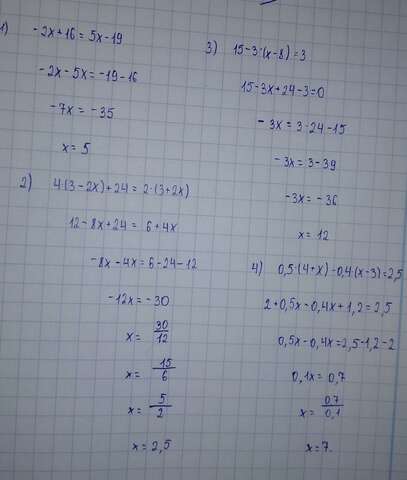 1) -2x+16=5x-19
-2x-5x=-19-16
-7x=-35
x=5
2) 4·(3-2x)+24=2·(3+2x)
12-8x+24=6+4x
-8x-4x=6-24-12
-12x=-30
x=30/12
x=15/6
x=5/2
x=2,5
3) 15-3·(x-8)=3
15-3x+24-3=0
-3x=3-24-15
-3x=3-39
-3x=-36
x=12
4) 0,5·(4+x)-0,4(x-3)=2,5
2+0,5x-0,4x+1,2=2,5
0,5x-0,4x=2,5-1,2-2
0,1x=0,7
x=0,7/0,1
x=7.